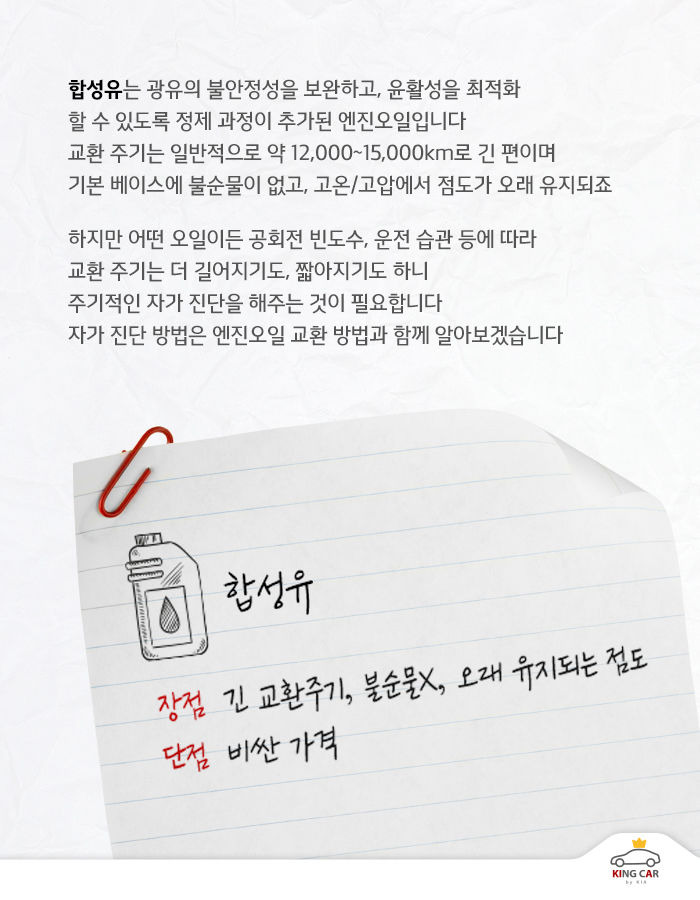 합성유는 광유의 불안정성을 보완하고, 윤활성을 최적화
할 수 있도록 정제 과정이 추가된 엔진오일입니다
교환 주기는 일반적으로 약 12,000~15,000km로 긴 편이며
기본 베이스에 불순물이 없고, 고온/고압에서 점도가 오래 유지되죠
하지만 어떤 오일이든 공회전 빈도수, 운전 습관 등에 따라
교환 주기는 더 길어지기도, 짧아지기도 하니
주기적인 자가 진단을 해주는 것이 필요합니다
자가 진단 방법은 엔진오일 교환 방법과 함께 알아보겠습니다
합성유
장점 긴 교환주기, 불순물X, 오래 유지되는 점도
단점 비싼 가격
KING CAR
by KIA